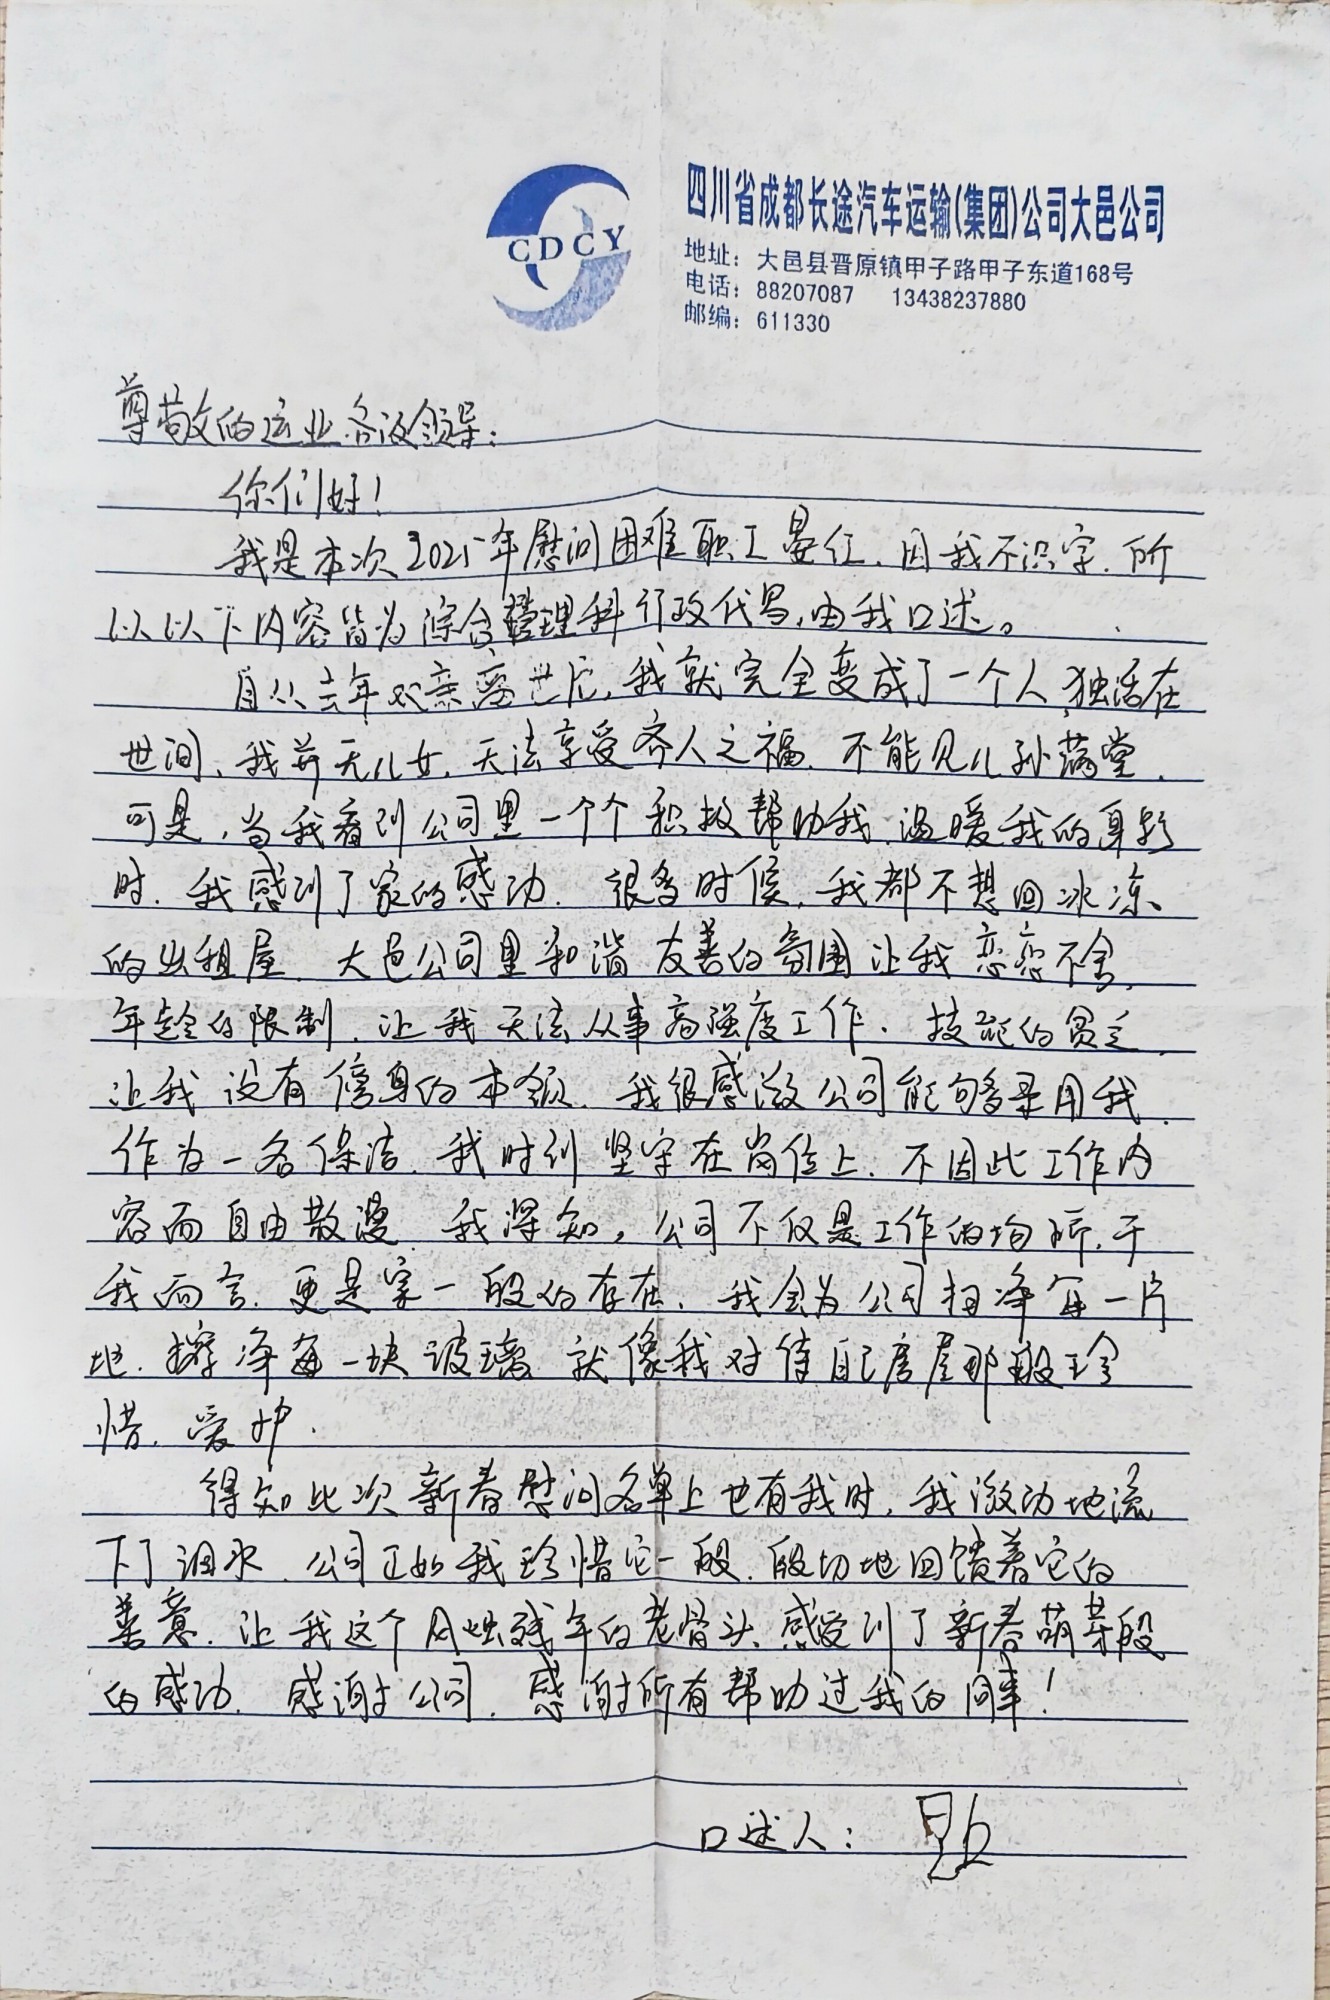 CDCY
四川省成都长途汽车运输(集团)公司大邑公司
地址：大邑县晋原镇甲子路甲子东道168号
电话：88207087 13438237880
邮编：611330
尊敬的运业各级领导：
你们好！
我是本次2025年慰问困难职工晏红，因我不识字，所
以以下内容皆为综合管理科行政代写，由我口述。
自从去年双亲离世后，我就完全变成了一个人独活在
世间，我并无儿女，无法享受齐人之福，不能见儿孙满堂，
可是，当我看到公司里一个个积极帮助我、温暖我的身影
时，我感到了家的感动，很多时候，我都不想回冰冻
的出租屋，大邑公司里和谐友善的氛围让我恋恋不舍，
年龄的限制，让我无法从事高强度工作，技能的贫乏，
让我没有傍身的本领，我很感激公司能够录用我，
作为一名保洁，我时刻坚守在岗位上，不因此工作内
容而自由散漫，我深知，公司不仅是工作的场所，于
我而言，更是家一般的存在，我会为公司扫净每一片
地，擦净每一块玻璃，就像我对待自己房屋那般珍
惜，爱护.
得知此次新春慰问名单上也有我时，我激动地流
下了泪水，公司正如我珍惜它一般，殷切地回馈着它的
善意，让我这个风烛残年的老骨头感受到了新春萌芽般
的感动，感谢公司，感谢所有帮助过我的同事！
口述人：